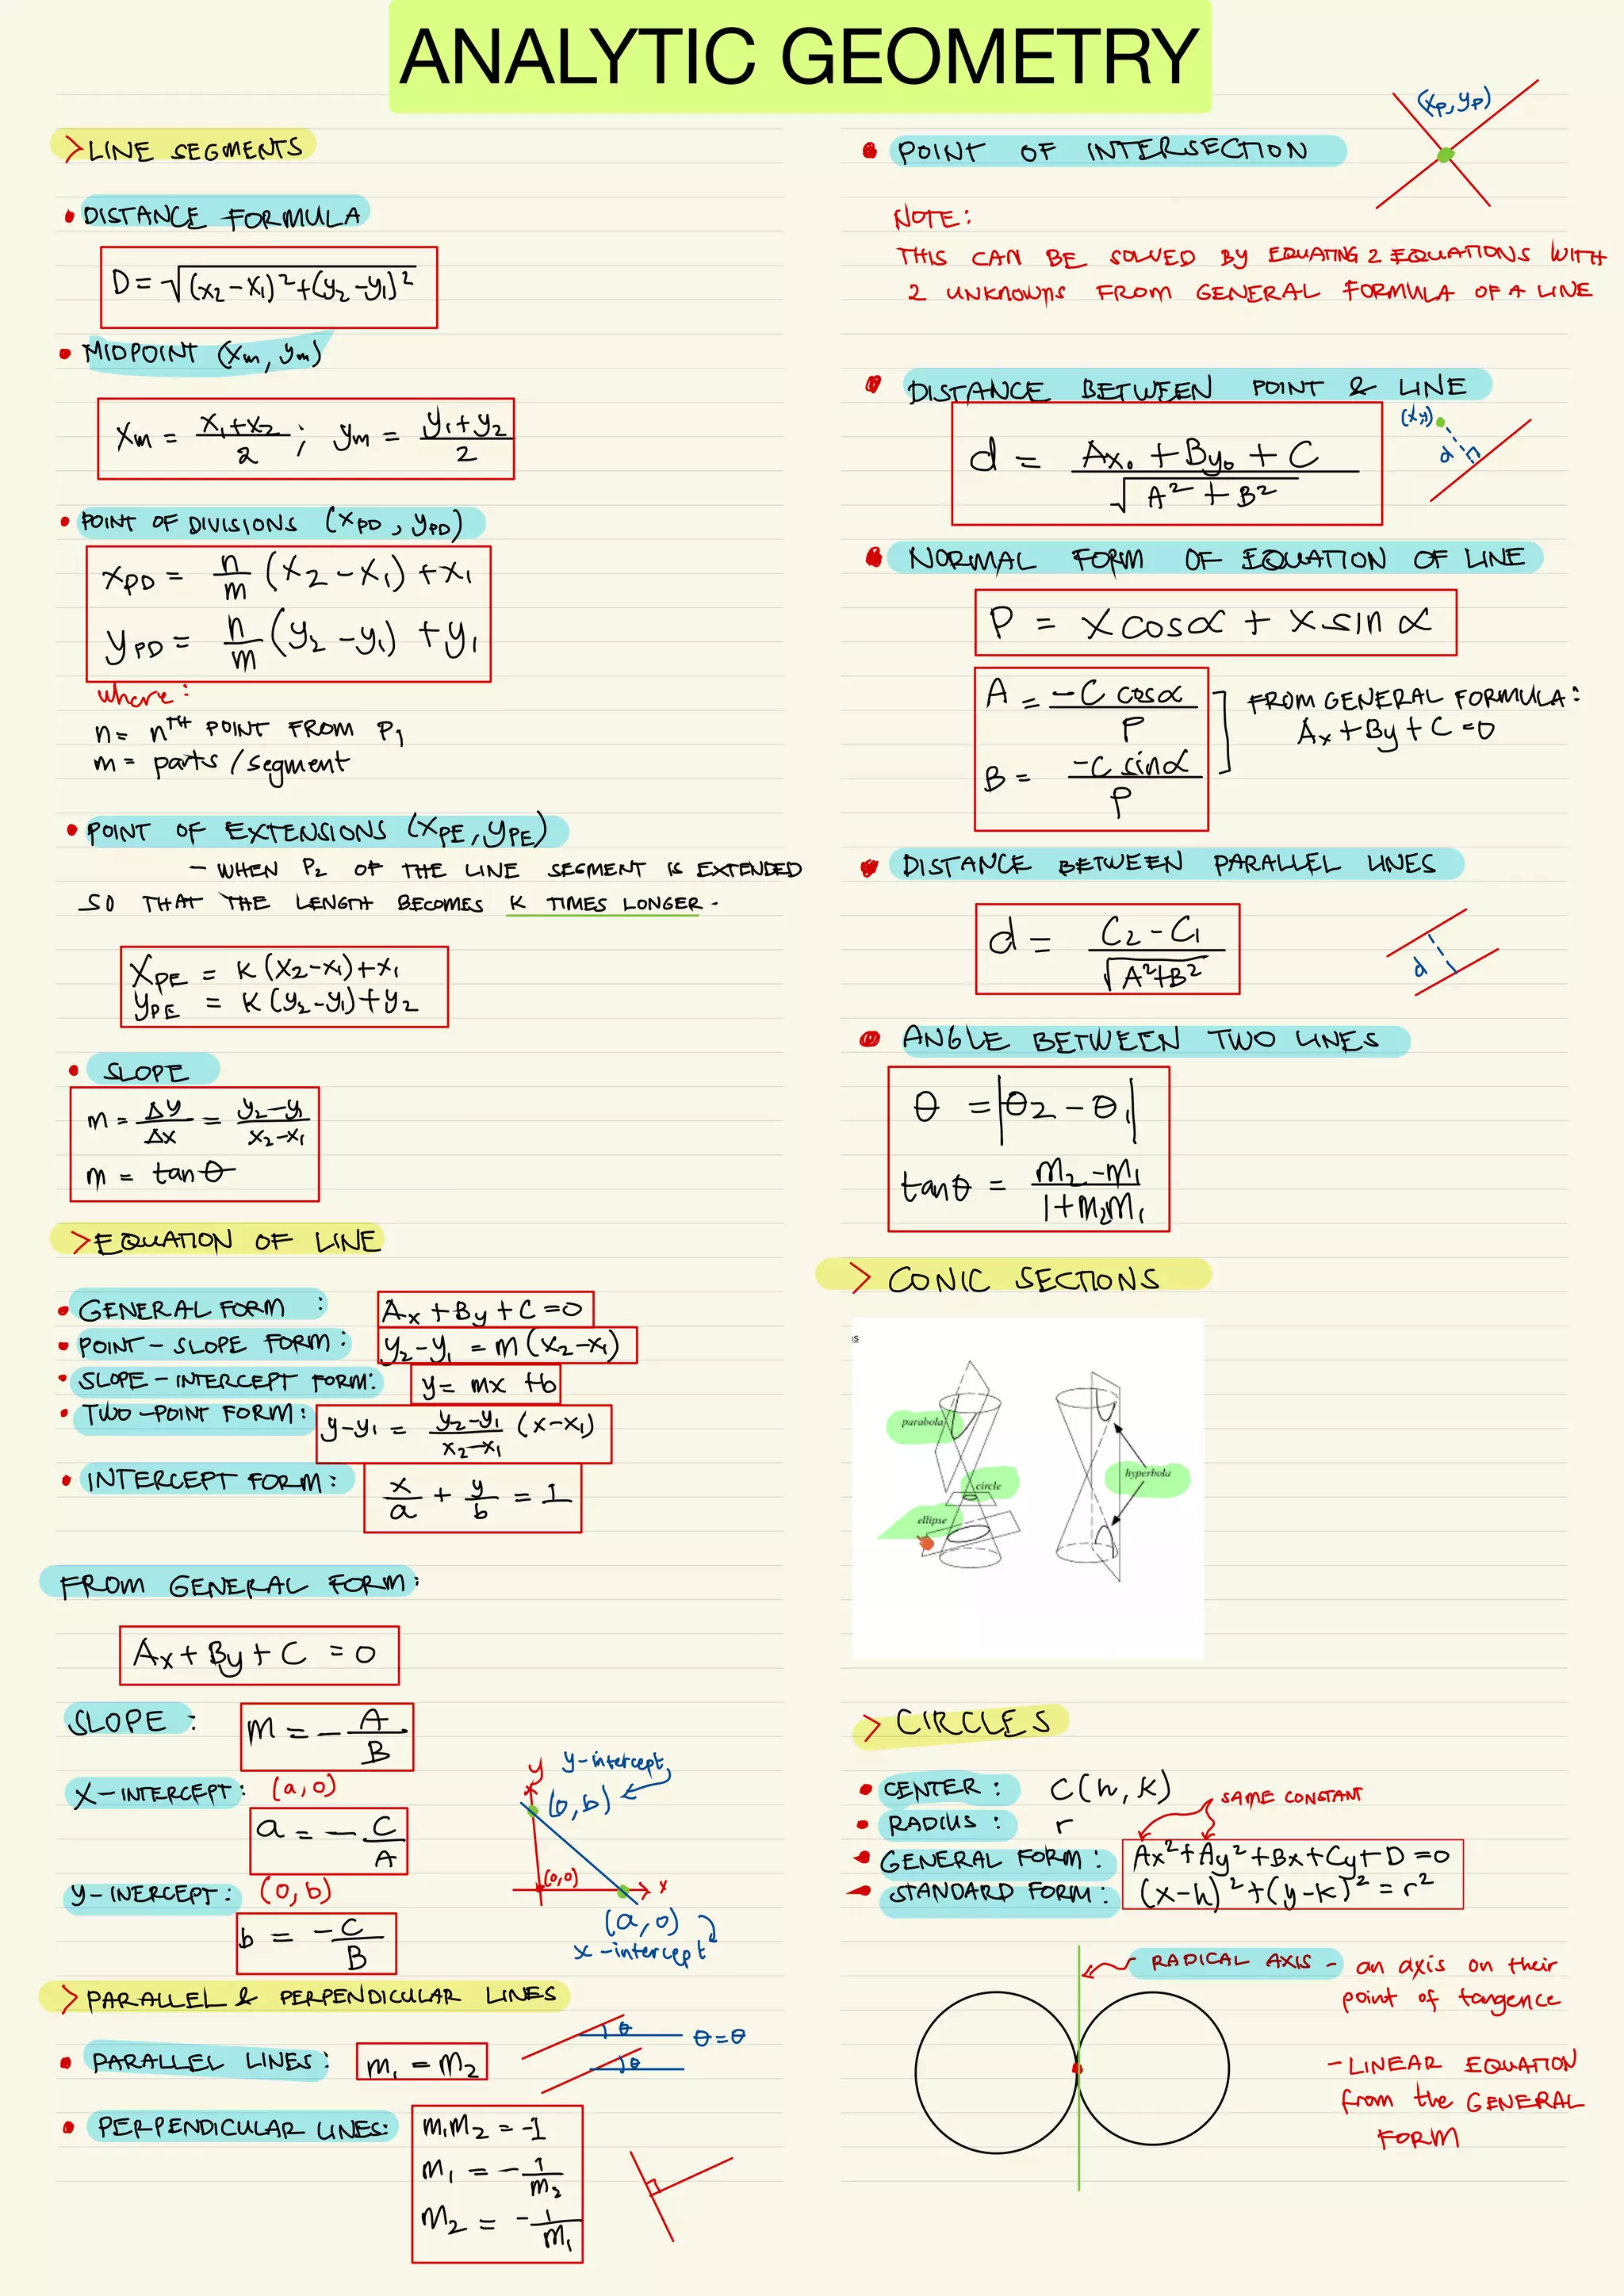 ANALYTIC GEOMETRY
> LINE SEGMENTS
• DISTANCE FORMULA
D = √(x₂ - x₁)² + (y₂ - y₁)²
• MIDPOINT (Xm, ym)
Xm = x₁ + x₂ / 2 ; ym = y₁ + y₂ / 2
• POINT OF DIVISIONS (XPD, YPD)
XPD = n/m (x₂ - x₁) + x₁
YPD = n/m (y₂ - y₁) + y₁
where:
n = nTH POINT FROM P₁
m = parts / segment
• POINT OF EXTENSIONS (XPE, YPE)
- WHEN P₂ OF THE LINE SEGMENT IS EXTENDED
SO THAT THE LENGTH BECOMES K TIMES LONGER.
XPE = K (x₂ - x₁) + x₁
YPE = K (y₂ - y₁) + y₂
• SLOPE
m = Δy/Δx = y₂ - y₁ / x₂ - x₁
m = tan θ
> EQUATION OF LINE
• GENERAL FORM : Ax + By + C = 0
• POINT - SLOPE FORM : y₂ - y₁ = m (x₂ - x₁)
• SLOPE - INTERCEPT FORM: y = mx + b
• TWO - POINT FORM : y - y₁ = y₂ - y₁ / x₂ - x₁ (x - x₁)
• INTERCEPT FORM : x/a + y/b = 1
FROM GENERAL FORM:
Ax + By + C = 0
SLOPE : m = - A/B
X - INTERCEPT: (a, 0)
a = - C/A
y - INERCEPT : (0, b)
b = - C/B
y
y - intercept
(0, b)
(0,0)
x
(a, 0)
x - intercept
> PARALLEL & PERPENDICULAR LINES
• PARALLEL LINES: m₁ = m₂
θ
θ
θ = θ
• PERPENDICULAR LINES: m₁m₂ = -1
m₁ = - 1/m₂
m₂ = - 1/m₁
• POINT OF INTERSECTION
(xp, yp)
NOTE:
THIS CAN BE SOLVED BY EQUATING 2 EQUATIONS WITH
2 UNKNOWNS FROM GENERAL FORMULA OF A LINE
• DISTANCE BETWEEN POINT & LINE
d = Ax₀ + By₀ + C / √A² + B²
(x,y)
d
• NORMAL FORM OF EQUATION OF LINE
P = x cos α + x sin α
A = -C cos α / P
B = -C sin α / P
FROM GENERAL FORMULA:
Ax + By + C = 0
• DISTANCE BETWEEN PARALLEL LINES
d = C₂ - C₁ / √A² + B²
d
• ANGLE BETWEEN TWO LINES
θ = |θ₂ - θ₁|
tan θ = m₂ - m₁ / 1 + m₂m₁
> CONIC SECTIONS
ns
parabola
circle
ellipse
hyperbola
> CIRCLES
• CENTER : C (h, k)
SAME CONSTANT
• RADIUS : r
• GENERAL FORM : Ax² + Ay² + Bx + Cy + D = 0
• STANDARD FORM : (x - h)² + (y - k)² = r²
RADICAL AXIS - an axis on their
point of tangence
- LINEAR EQUATION
from the GENERAL
FORM